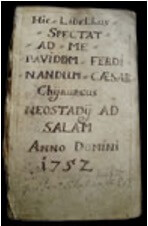 Hic Libellus
SPECTAT
AD ME
DAVIDEM FERDI
NANDUM CÆSAR
Chyrurcus
NEOSTADIJ AD
SALAM
ANNO DOMINI
1752